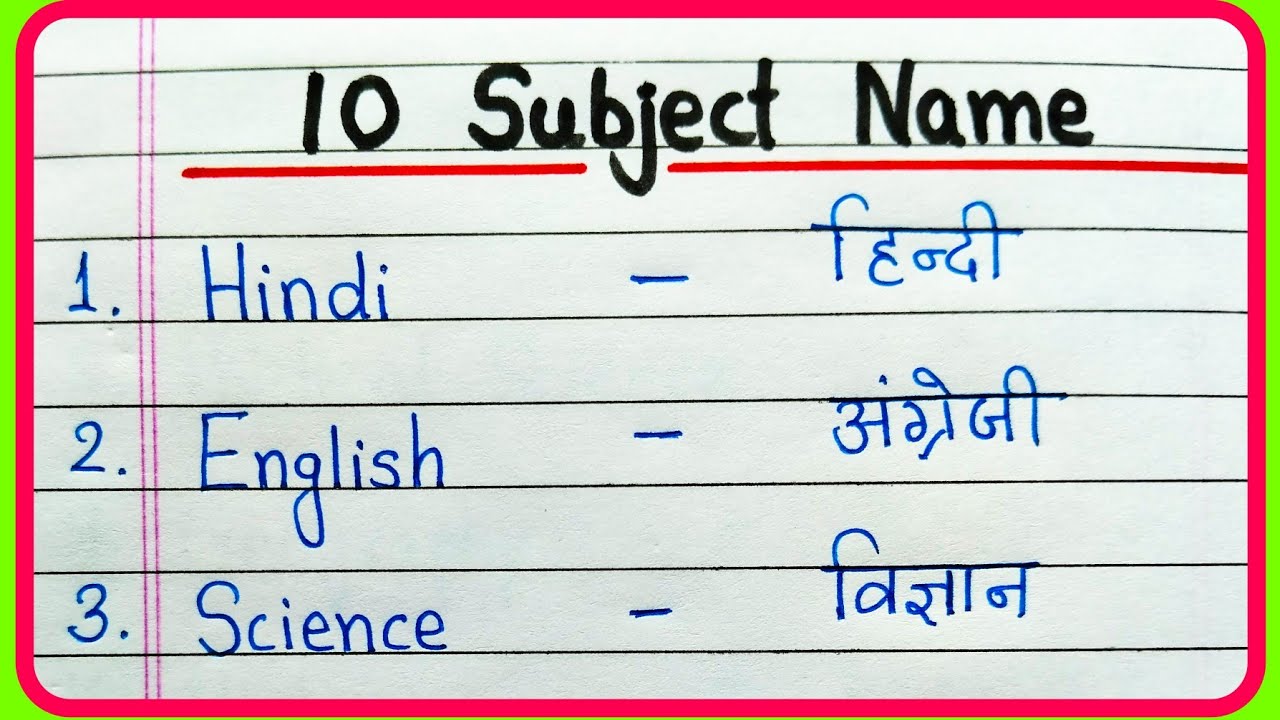 10 Subject Name
1. Hindi - हिन्दी
2. English - अंग्रेजी
3. Science - विज्ञान